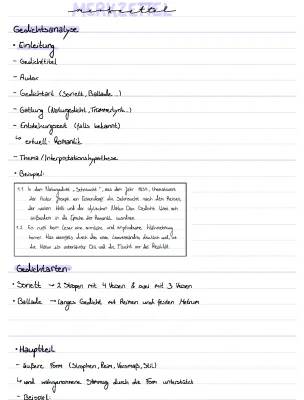 MERKZETTEL
Gedichtsanalyse
• Einleitung
- Gedichttitel
- Autor
- Gedichtart (Sonett, Ballade...)
- Gattung (Naturgedicht, Trümmerlyrik...)
- Entstehungszeit (falls bekannt)
↳ eventuell: Romantik
- Thema / Interpretationshypothese
• Beispiel:
1.1 In dem Naturgedicht „Sehnsucht", aus dem Jahr 1834, thematisiert
der Autor Joseph von Eichendorff die Sehnsucht nach dem Reisen,
der weiten Welt und der idyllischen Natur. Das Gedicht lässt sich
in die Epoche der Romantik
1.2 Es ruft beim Leser eine
hervor. Hier
die Natur als Ort und die Flucht vor der Realität.
Gedichtarten:
• Sonett → 2 Strophen mit 4 Versen & zwei mit 3 Versen
• Ballade → langes Gedicht mit Reimen und festem Metrum
• Hauptteil
- äußere Form (Strophen, Reim, Versmaß, Stil)
↳ wird wahrgenommene Stimmung durch die Form unterstützt
- Beispiel: